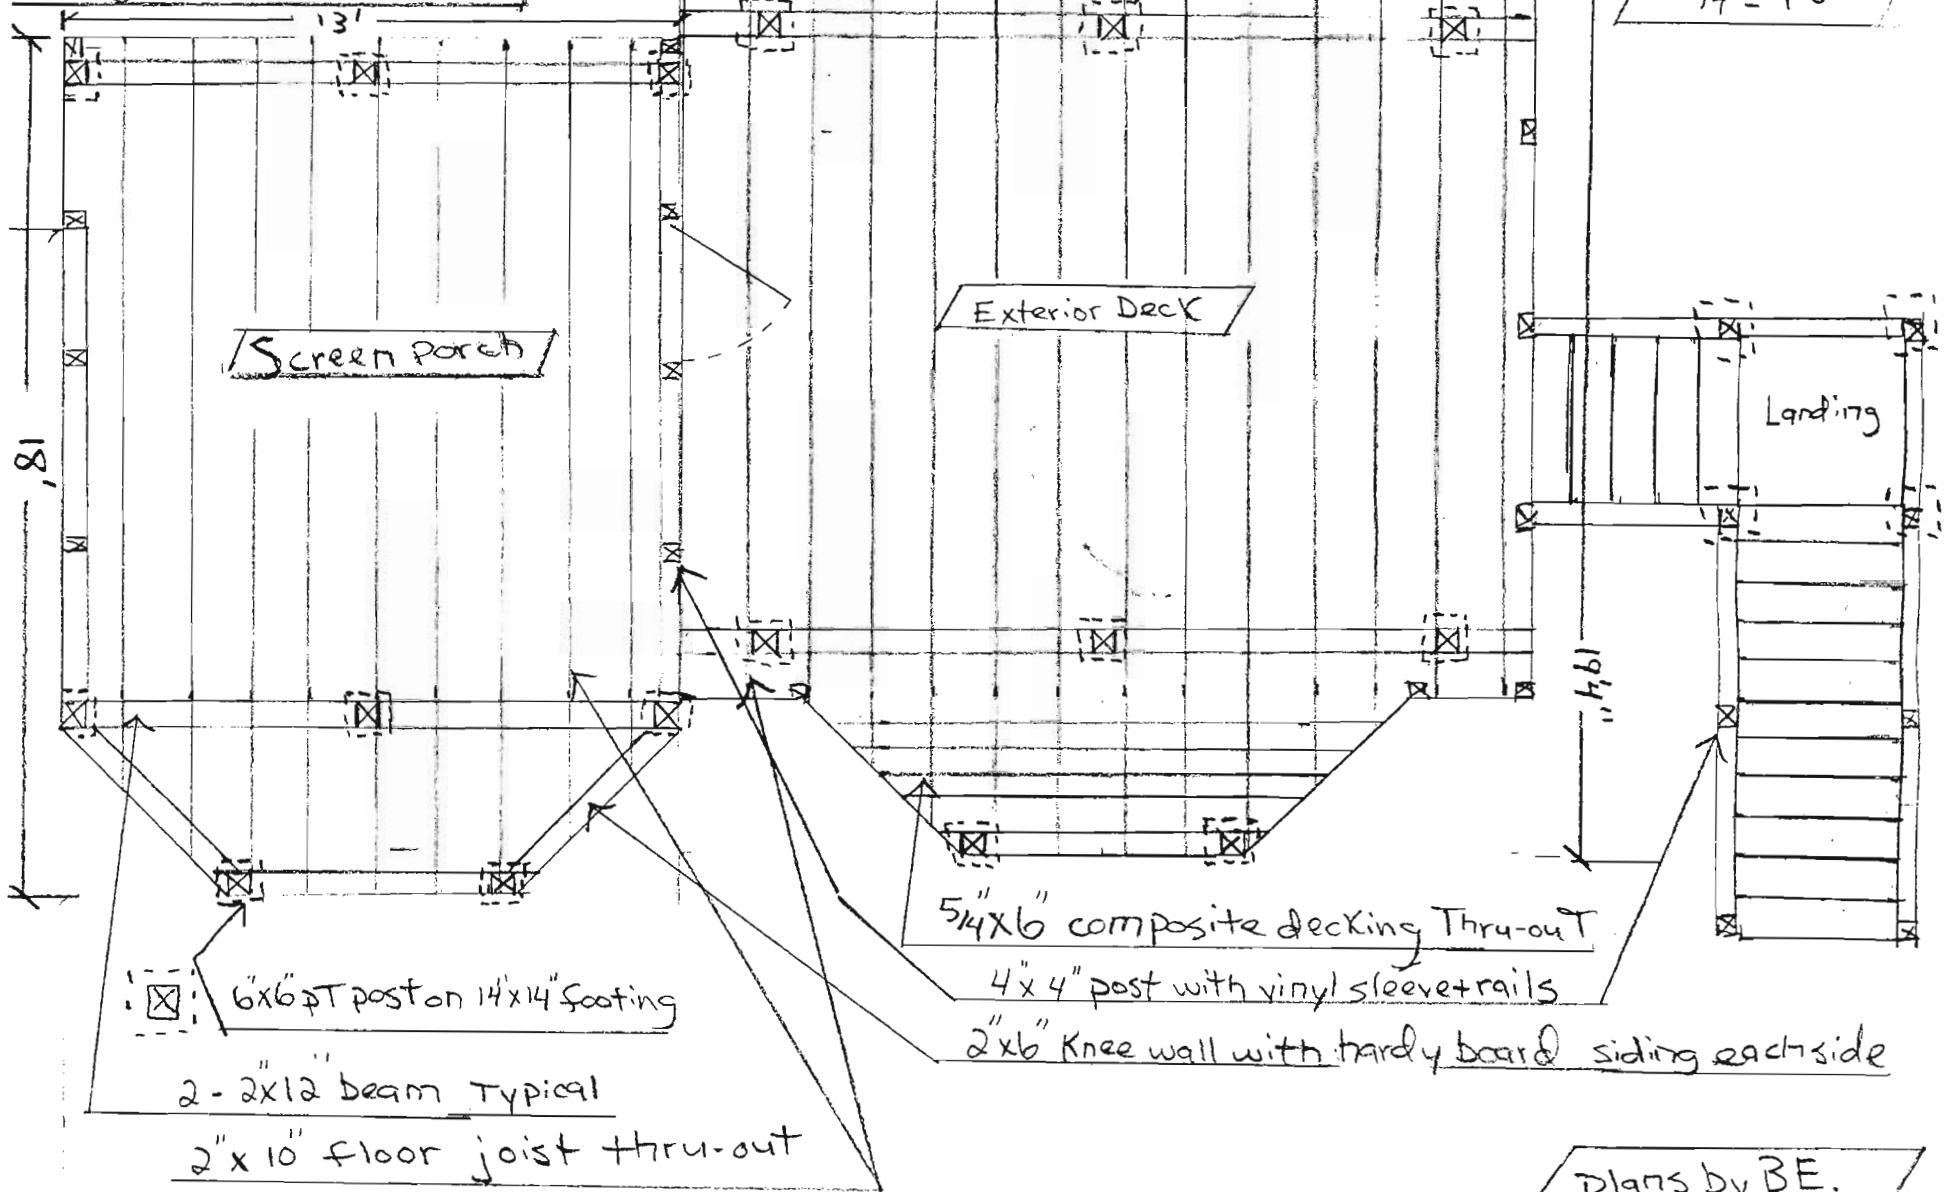 13'
Screen porch
Exterior Deck
Landing
18'
19'4"
5/4"x6" composite decking Thru-out
4"x4" post with vinyl sleeve+rails
2"x6" Knee wall with hardy board siding each side
6"x6" pT post on 14"x14" footing
2-2"x12" beam Typical
2"x10" floor joist thru-out
plans by BE.